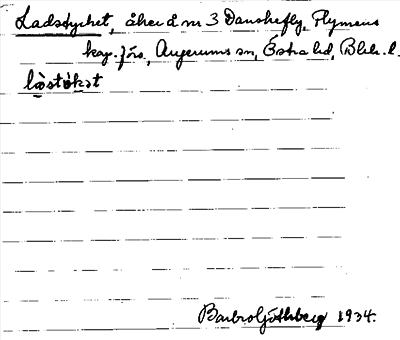 Ladstycket, åker å nr 3 Danskefly, Flymens
kap. förs., Augerums sn, Östra hd, Blek. l.
lastøkət
Barbro Göthberg 1934.